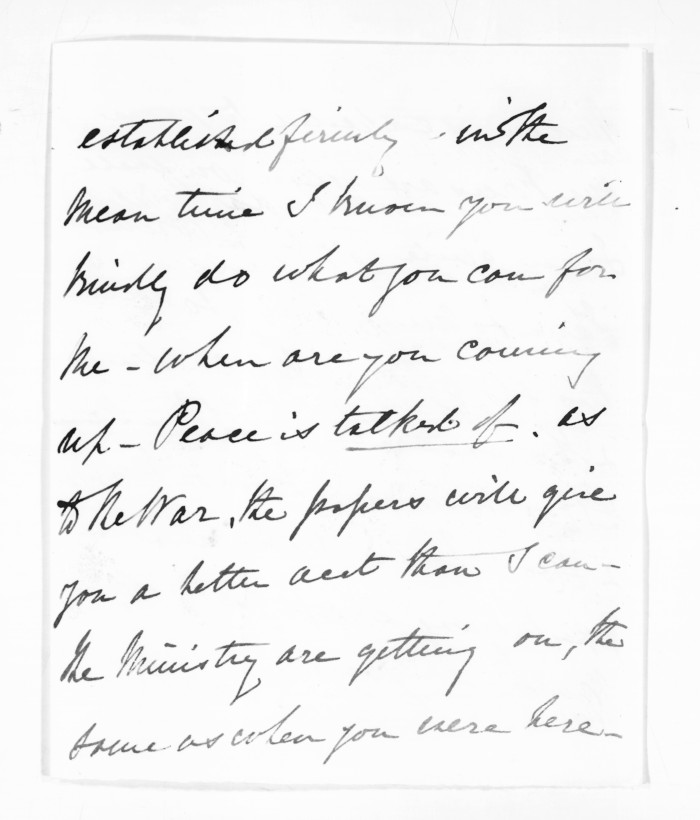 established firmly - in the
mean time I know you will
kindly do what you can for
me - when are you coming
up - Peace is talked of. as
to the War, the papers will give
you a better acct than I can -
the Ministry are getting on, the
same as when you were here -